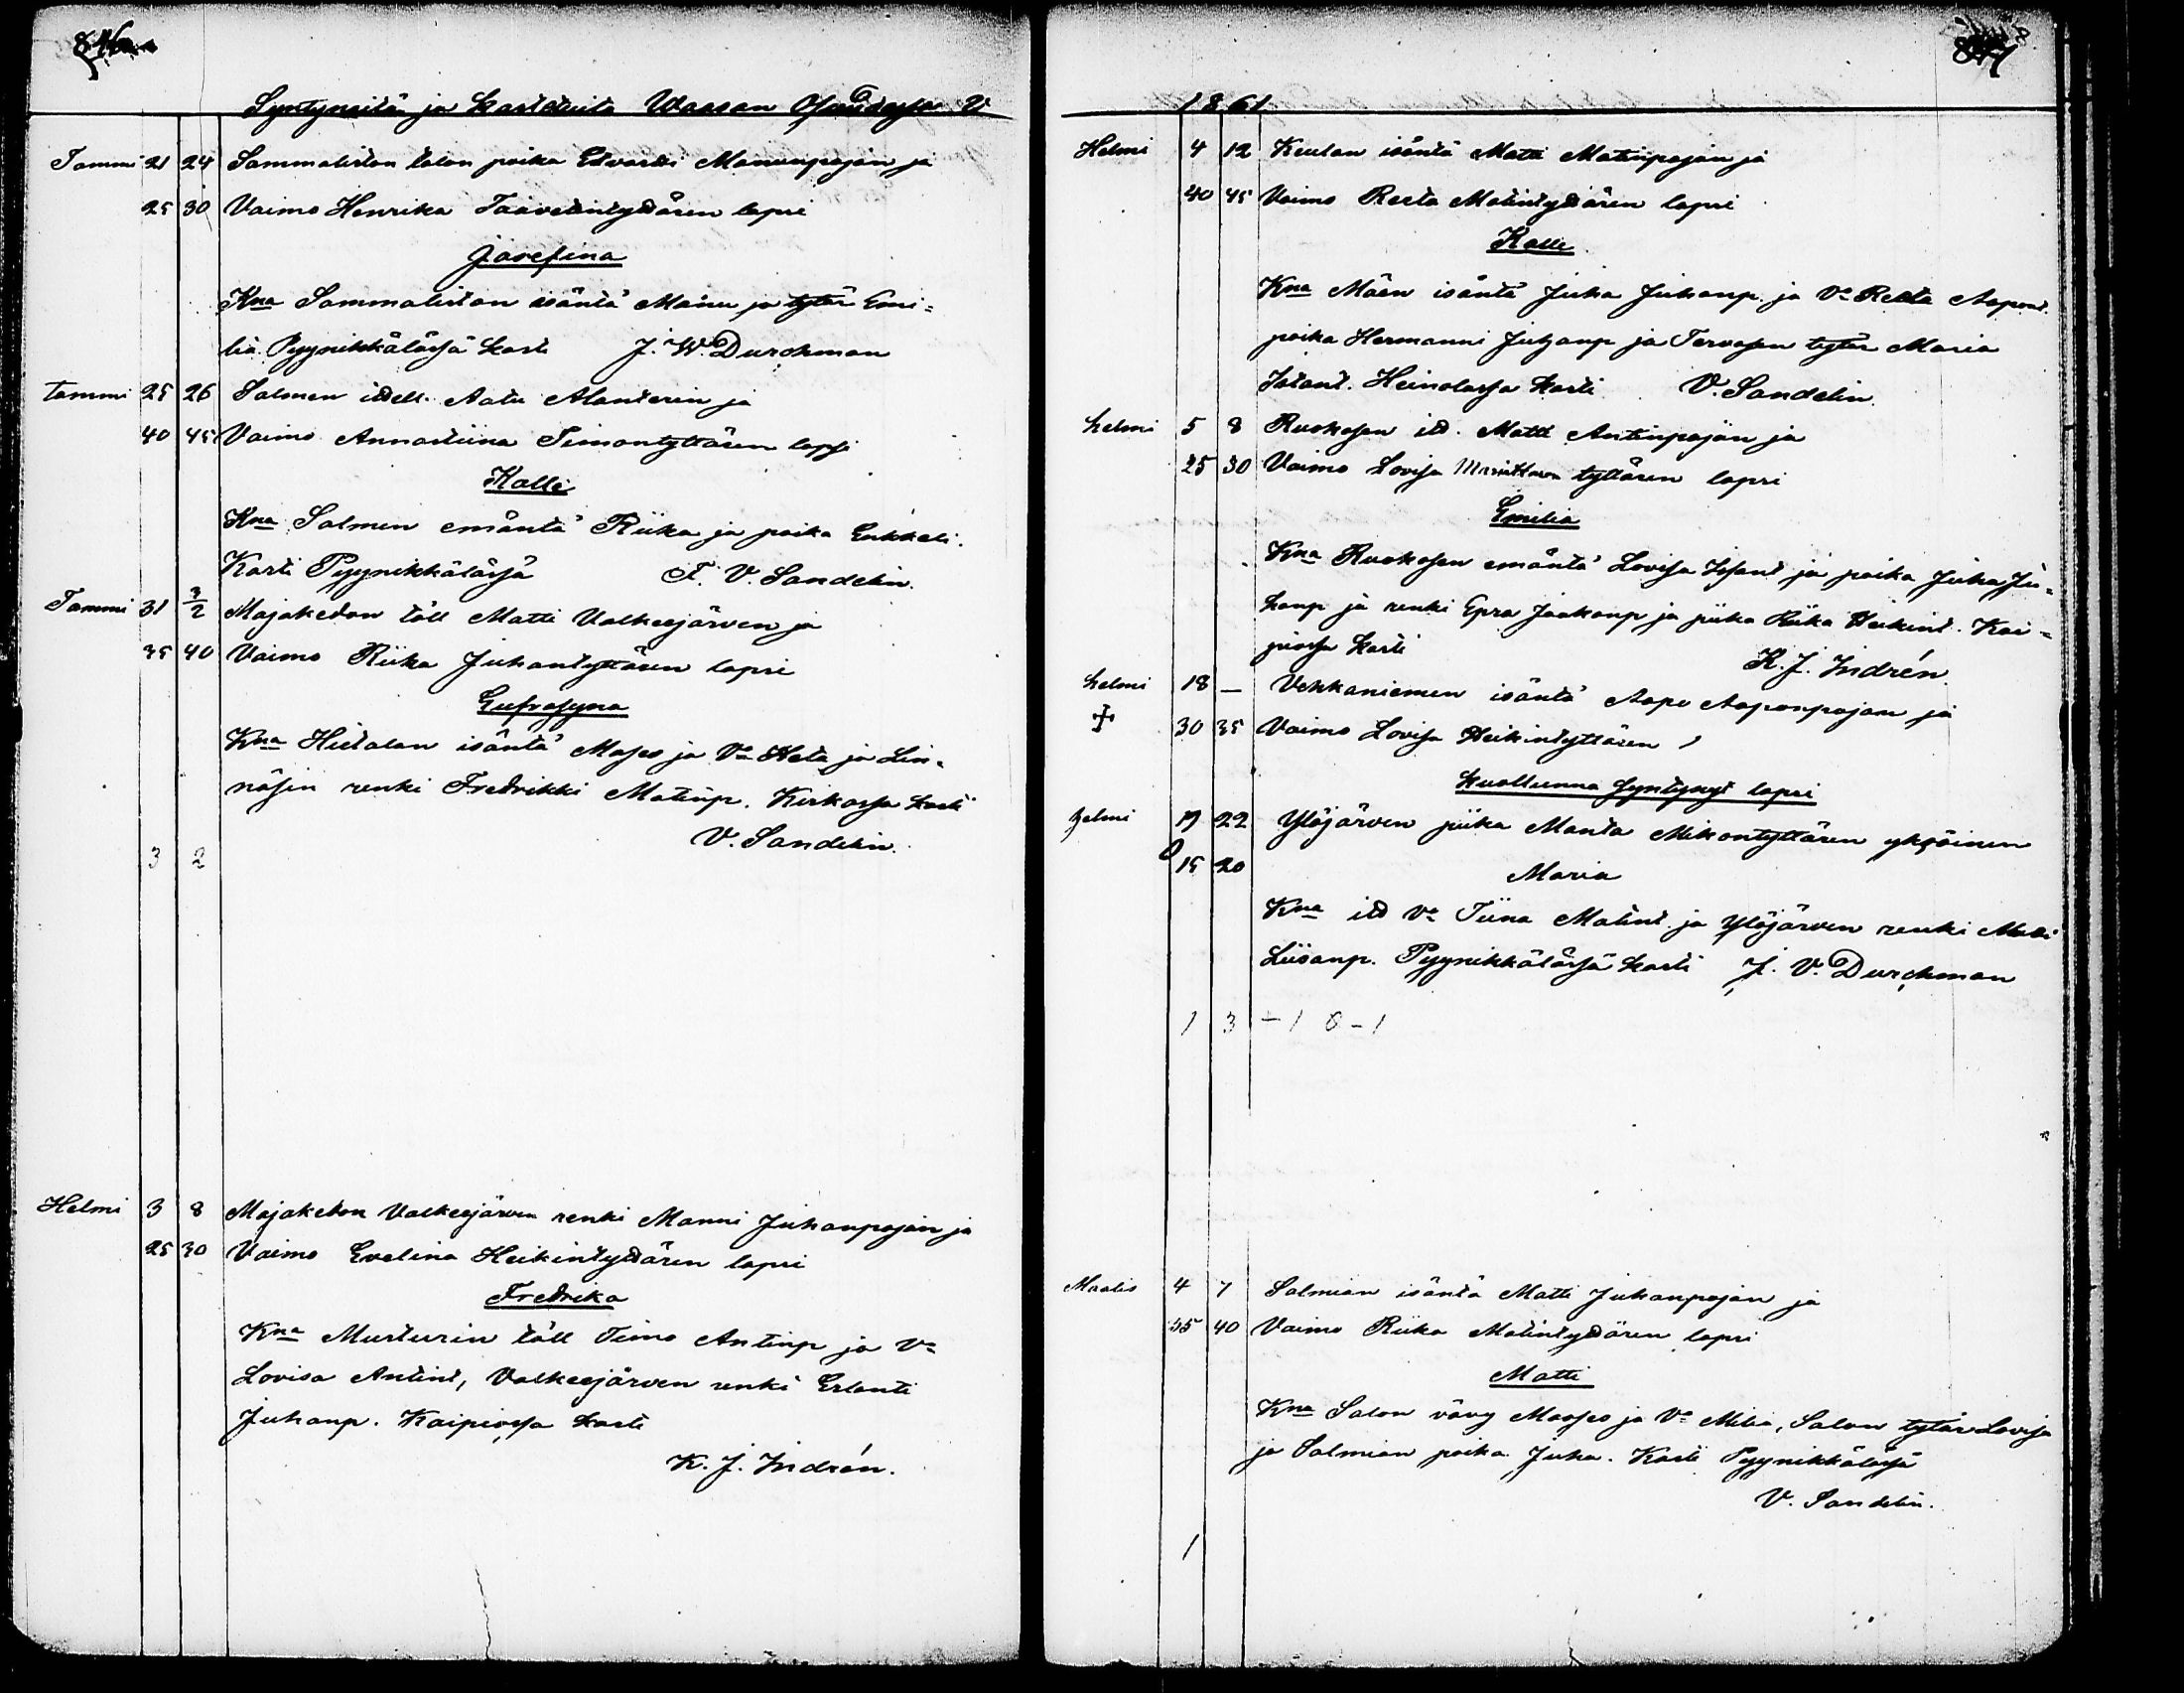 846
Syntyneitä ja kastetuita Waasan Osuudessa V
Tammi 21 24 Sammaliston talon poika Edvardi Manunpojan ja
25 30 Vaimo Henrika Taavetintyttären lapsi
Josefina
Kna Sammaliston isäntä Manu ja tytär Emi=
lia. Pyynikkälässä kasti J. W. Durchman
Tammi 25 26 Salmen itsell. Aatu Alanterin ja
40 45 Vaimo Annastiina Simontyttären lapsi
Kalle
Kna Salmen emäntä Riika ja poika Eukkeli.
Kasti Pyynikkälässä F. V. Sandelin.
Tammi 31 3/2 Majakedon töll Matti Valkeejärven ja
35 40 Vaimo Riika Juhantyttären lapsi
Eufrosyna
Kna Hietalan isäntä Moses ja Va Heta ja Lin=
näsin renki Fredrikki Matinp. Kirkossa kasti
V. Sandelin.
3 2
Helmi 3 8 Majakedon Valkeejärven renki Manni Juhanpojan ja
25 30 Vaimo Evelina Heikintyttären lapsi
Fredrika
Kna Musturin töll Timo Antinp ja Va
Lovisa Antint, Valkeejärven renki Erlanti
Juhanp. Kaipiossa kasti
K. J. Indrén.
847
1861
Helmi 4 12 Keulan isäntä Matti Matinpojan ja
40 45 Vaimo Reeta Matintyttären lapsi
Kalle
Kna Mäen isäntä Juha Juhanp. ja Va Reeta Aapont.
poika Hermanni Juhanp ja Tervasen tytär Maria
Istant. Heinolassa kasti V. Sandelin.
helmi 5 8 Ruokosen its. Matti Antinpojan ja
25 30 Vaimo Lovisa tyttären lapsi
Emilia
Kna Ruokosen emäntä Lovisa ja poika Juha Ju=
hanp ja renki Epra Jaakonp ja piika Riika Heikint. Kai=
piossa kasti
K. J. Indrén.
helmi 18 — Vehkaniemen isäntä Aapo Aaponpojan ja
✝ 30 35 Vaimo Lovisa Heikintyttären
kuolleunna syntynyt lapsi
helmi 19 22 Ylöjärven piika Manta Mikontyttären yksöinen
15 20 Maria
Kna its Va Tiina Matint. ja Ylöjärven renki Matti
Liisanp. Pyynikkälässä kasti J. V. Durchman
1 3 – 1 0 – 1
Maalis 4 7 Salmian isäntä Matti Juhanpojan ja
35 40 Vaimo Riika Matintyttären lapsi
Matti
Kna Salon vävy Mooses ja Va Milia, Salon tytär Lovisa
ja Salmian poika Juha. Kasti Pyynikkälässä
V. Sandelin.
1